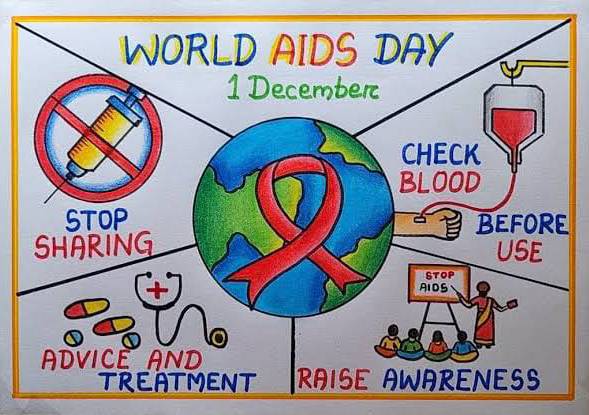 WORLD AIDS DAY
1 December
STOP
SHARING
CHECK
BLOOD
BEFORE
USE
ADVICE AND
TREATMENT
STOP
AIDS
RAISE AWARENESS